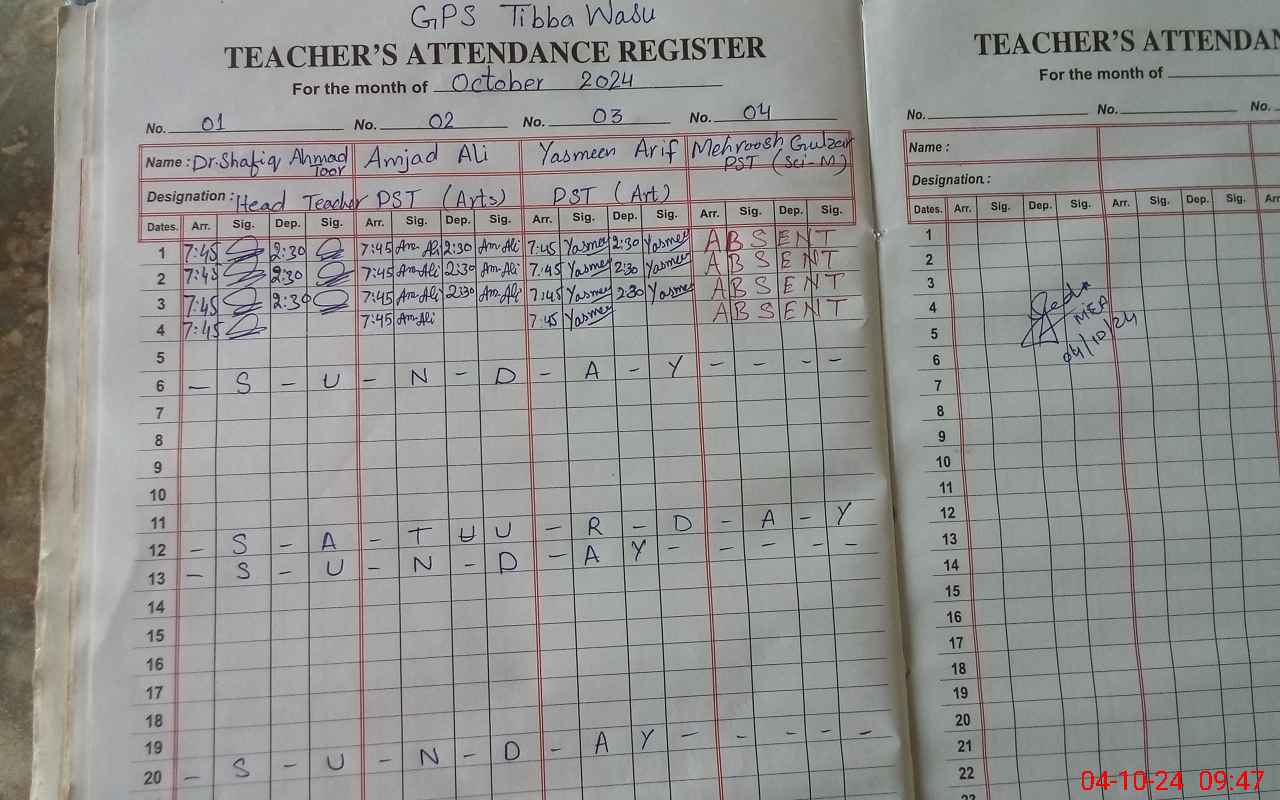 GPS Tibba Wasu
TEACHER'S ATTENDANCE REGISTER
For the month of October 2024
No. 01 No. 02 No. 03 No. 04
Name : Dr. Shafiq Ahmad Toor Amjad Ali Yasmeen Arif Mehroosh Gulzar
PST (Sci-M)
Designation : Head Teacher PST (Arts) PST (Art)
Dates. Arr. Sig. Dep. Sig. Arr. Sig. Dep. Sig. Arr. Sig. Dep. Sig. Arr. Sig. Dep. Sig.
1 7:45 2:30 7:45 Am-Ali 2:30 Am-Ali 7:45 Yasmee 2:30 Yasmee ABSENT
2 7:45 2:30 7:45 Am-Ali 2:30 Am-Ali 7:45 Yasmee 2:30 Yasmee ABSENT
3 7:45 2:30 7:45 Am-Ali 2:30 Am-Ali 7:45 Yasmee 2:30 Yasmee ABSENT
4 7:45 7:45 Am-Ali 7:45 Yasmee ABSENT
5
6 – S – U – N – D – A – Y – – – –
7
8
9
10
11
12 – S – A – T U U – R – D – A – Y
13 – S – U – N – D – A Y – – – – –
14
15
16
17
18
19
20 – S – U – N – D – A Y – – – – –
TEACHER'S ATTENDAN
For the month of
No. No. No.
Name :
Designation :
Dates. Arr. Sig. Dep. Sig. Arr. Sig. Dep. Sig. Arr
1
2
3
4
5
6
7
8
9
10
11
12
13
14
15
16
17
18
19
20
21
22
23
MEA
04/10/24
04-10-24 09:47